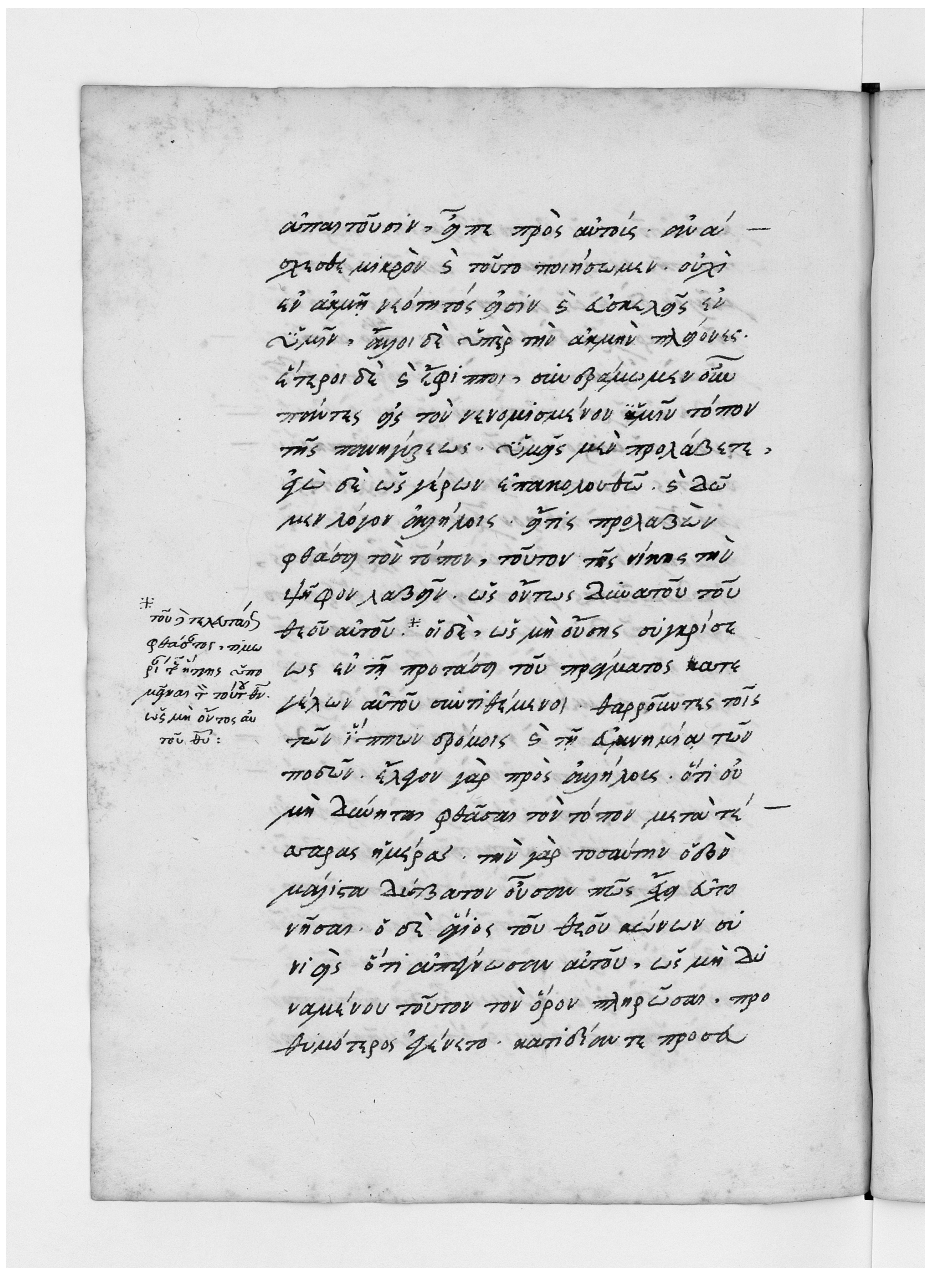 ἀπαιτοῦσιν, εἶπε πρὸς αὐτούς· οὐν ἀνά —
σχεσθε μικρὸν καὶ τοῦτο ποιήσωμεν· οὐχὶ
ἐν ἀκμῇ νεότητός εἰσιν καὶ εὐσκελεῖς ἐν
ὑμῖν, ἄλλοι δὲ ὑπὲρ τὴν ἀκμὴν πλείονες·
ἕτεροι δὲ καὶ ἔφιπποι, συνδράμωμεν οὖν
πάντες εἰς τὸν νενομισμένον ἡμῖν τόπον
τῆς πανηγύρεως· ὑμεῖς μὲν προλάβετε,
ἐγὼ δὲ ὡς γέρων ἐπακολουθῶ· καὶ δῶ
μεν λόγον ἀλλήλοις· εἴτις προλαβὼν
φθάσει τὸν τόπον, τοῦτον τῆς νίκης τὴν
ψῆφον λαβεῖν· ὡς ὄντως δυνατοῦ τοῦ
θεοῦ αὐτοῦ· ※ οἱ δὲ, ὡς μὴ οὔσης συγκρίσε
ως ἐν τῇ προτάσει τοῦ πράγματος κατε
γέλων αὐτοῦ συντιθέμενοι· θαρροῦντες τοῖς
τῶν ἵππων δρόμοις καὶ τῇ εὐκνημίᾳ τῶν
ποδῶν· ἔλεγον γὰρ πρὸς ἀλλήλους· ὅτι οὐ
μὴ δύνηται φθᾶσαι τὸν τόπον μετὰ τέσ —
σαρας ἡμέρας· τὴν γὰρ τοσαύτην ὁδὸν
μάλιστα δύσβατον οὖσαν πῶς ἔχει εὐτο
νῆσαι· ὁ δὲ ἅγιος τοῦ θεοῦ κώνων συ
νιεὶς ὅτι ἀπέγνωσαν αὐτοῦ, ὡς μὴ δυ
ναμένου τοῦτον τὸν ὅρον πληρῶσαι, προ
θυμότερος ἐγένετο· κατιδίαν τε προσευ
※
τοῦ δὲ τελευταίου
φθάσαντος, τιμω
ρίαν τῆς ἥττης ὑπο
μεῖναι καὶ τὸν τούτου θν·
ὡς μὴ ὄντος αὐ
τοῦ θυ: